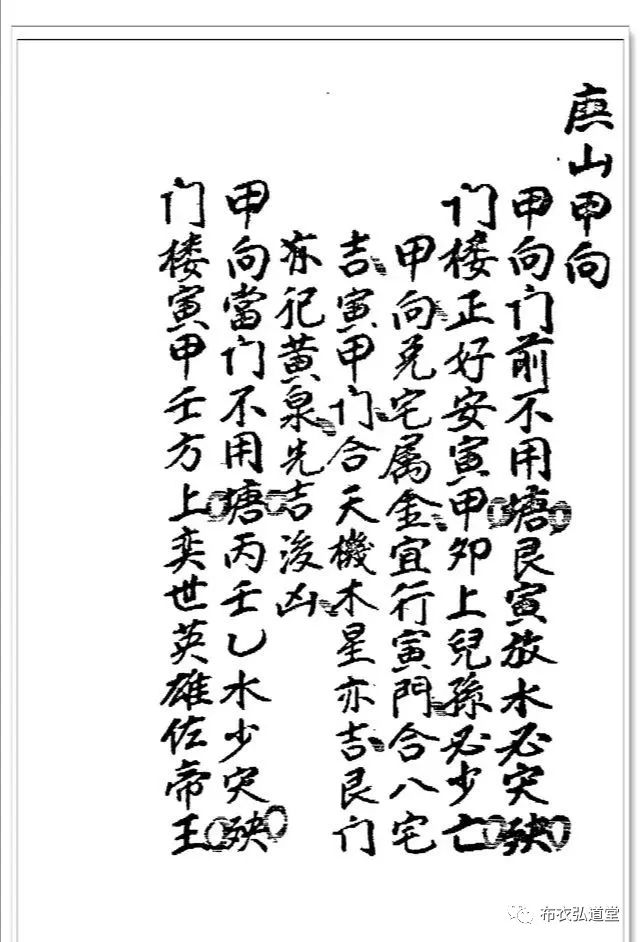 庚山甲向
甲向门前不用塘艮寅放水必灾殃
门楼正好安寅甲卯上兒孫必少亡
甲向兑宅属金宜行寅門合八宅
吉寅甲门合天機木星亦吉艮门
亦犯黄泉先吉後凶
甲向當门不用塘丙壬乙水少灾殃
门楼寅甲壬方上奕世英雄佐帝王
布衣弘道堂